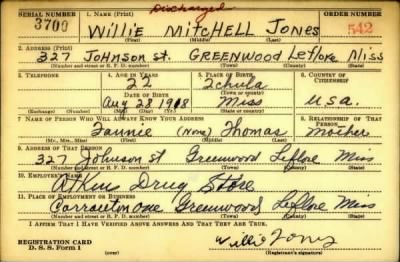 Discharged
SERIAL NUMBER 1. NAME (Print) ORDER NUMBER
3700 WILLIE MITCHELL JONES 542
(First) (Middle) (Last)
2. ADDRESS (Print)
327 JOHNSON St. GREENWOOD Leflore Miss
(Number and street or R. F. D. number) (Town) (County) (State)
3. TELEPHONE 4. AGE IN YEARS 5. PLACE OF BIRTH 6. COUNTRY OF CITIZENSHIP
22 Tchula
DATE OF BIRTH (Town or county)
Aug 28 Miss U.S.A.
(Exchange) (Number) (Mo.) (Day) (Yr.) (State or country)
7. NAME OF PERSON WHO WILL ALWAYS KNOW YOUR ADDRESS 8. RELATIONSHIP OF THAT PERSON
Fannie (None) Thomas Mother
(Mr., Mrs., Miss) (First) (Middle) (Last)
9. ADDRESS OF THAT PERSON
327 Johnson St Greenwood Leflore Miss
(Number and street or R. F. D. number) (Town) (County) (State)
10. EMPLOYER'S NAME
Drug Store
11. PLACE OF EMPLOYMENT OR BUSINESS
Carrollton ave Greenwood Leflore Miss
(Number and street or R. F. D. number) (Town) (County) (State)
I AFFIRM THAT I HAVE VERIFIED ABOVE ANSWERS AND THAT THEY ARE TRUE.
REGISTRATION CARD Willie Jones
D. S. S. Form 1 (over) (Registrant's signature)